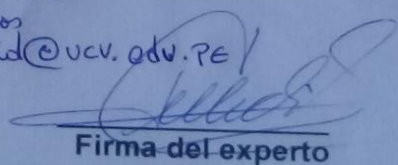 d@ucv.edu.PE
Firma del experto